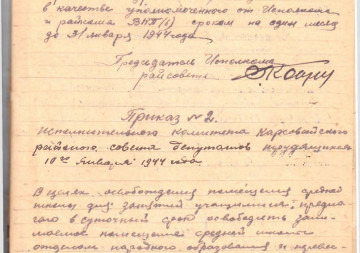 в качестве уполномоченного от Исполкома
и райкома ВКП(б) сроком на один месяц
до 31 января 1944 года.
Председатель Исполкома
райсовета
Приказ № 2.
Исполнительного Комитета Карсовайского
районного совета Депутатов трудящихся
10го января 1944 года
В целях освобождения помещения средней
школы для занятий учащимися, предла-
гаю в суточный срок освободить зани-
маемое помещение средней школы
отделом народного образования и